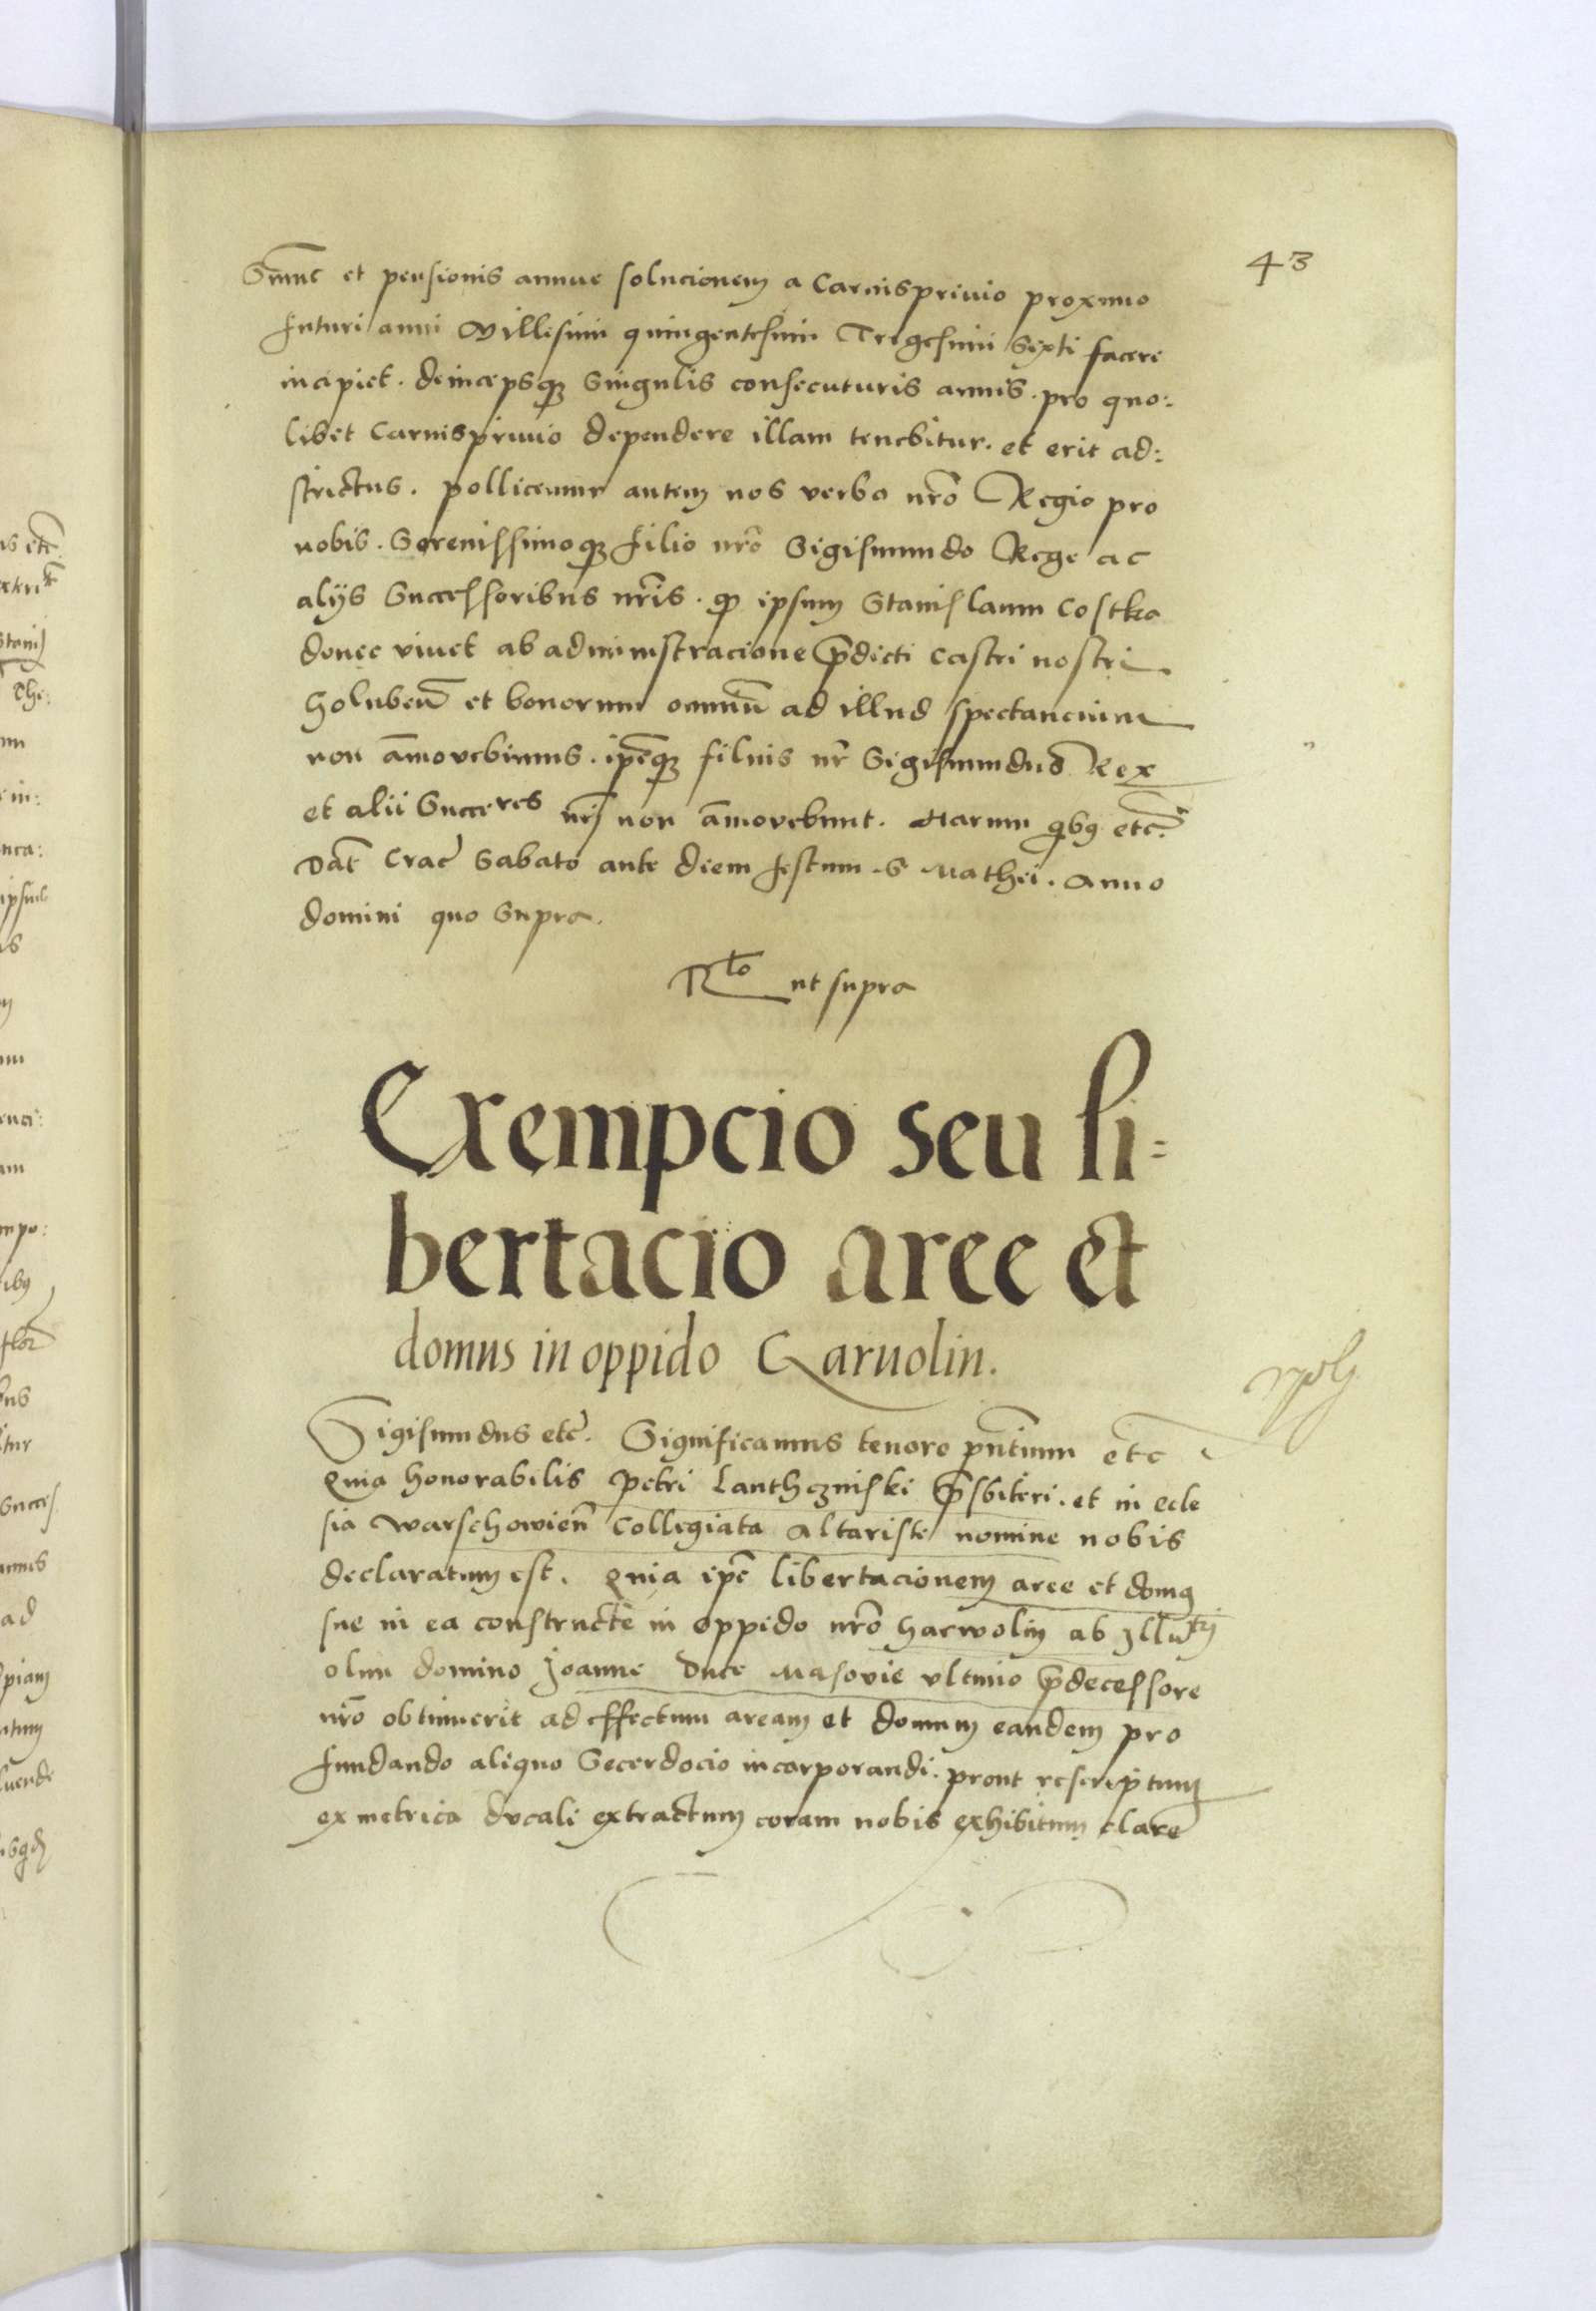 43
Summe et pensionis annue solucionem a Carnisprivio proximo
futuri anni Millesimi quingentesimi Trigesimi Sexti facere
incipiet. deincepsq3 Singulis consecuturis annis. pro quo:
libet Carnisprivio dependere illam tenebitur. et erit ad:
strictus. pollicemur autem nos verbo nr̃o Regio pro
nobis. Serenissimoq3 filio nr̃o Sigismundo Rege ac
alijs Successoribus nr̃is. q̃ ipsum Stanislaum Costka
donec vivet ab administracione p̃dicti castri nostri
Holuben̄ et bonorum omniū ad illud spectancium
non āmovebimus. ip̃eq3 filius nr̃ Sigismundus Rex
et alii Succeres nr̃j non āmovebunt. Harum qͥbꝫ etc̃.
Dat̃ Crac̃ Sabato ante diem festum S Mathei. Anno
domini quo Supra.
Rᵗᵒ ut supra
Exempcio seu li=
bertacio aree et
domus in oppido Garuolin.
Sigismundus etc̃. Significamus tenore p̃ntium etc
Quia honorabilis Petri Lanthczniski p̃sbiteri. et in ecle
sia Warschowien̄ Collegiata Altariste nomine nobis
declaratum est. Quia ip̃e libertacionem aree et domꝫ
sue in ea constructe in oppido nr̃o Harwolin ab Illuᵗʳⁱ
olim domino Joanne Duce Masovie ultimo p̃decessore
nr̃o obtinuerit ad effectum aream et domum eandem pro
fundando aliquo Secerdocio incorporandi. prout rescriptum
ex metrica ducali extractum coram nobis exhibitum clare